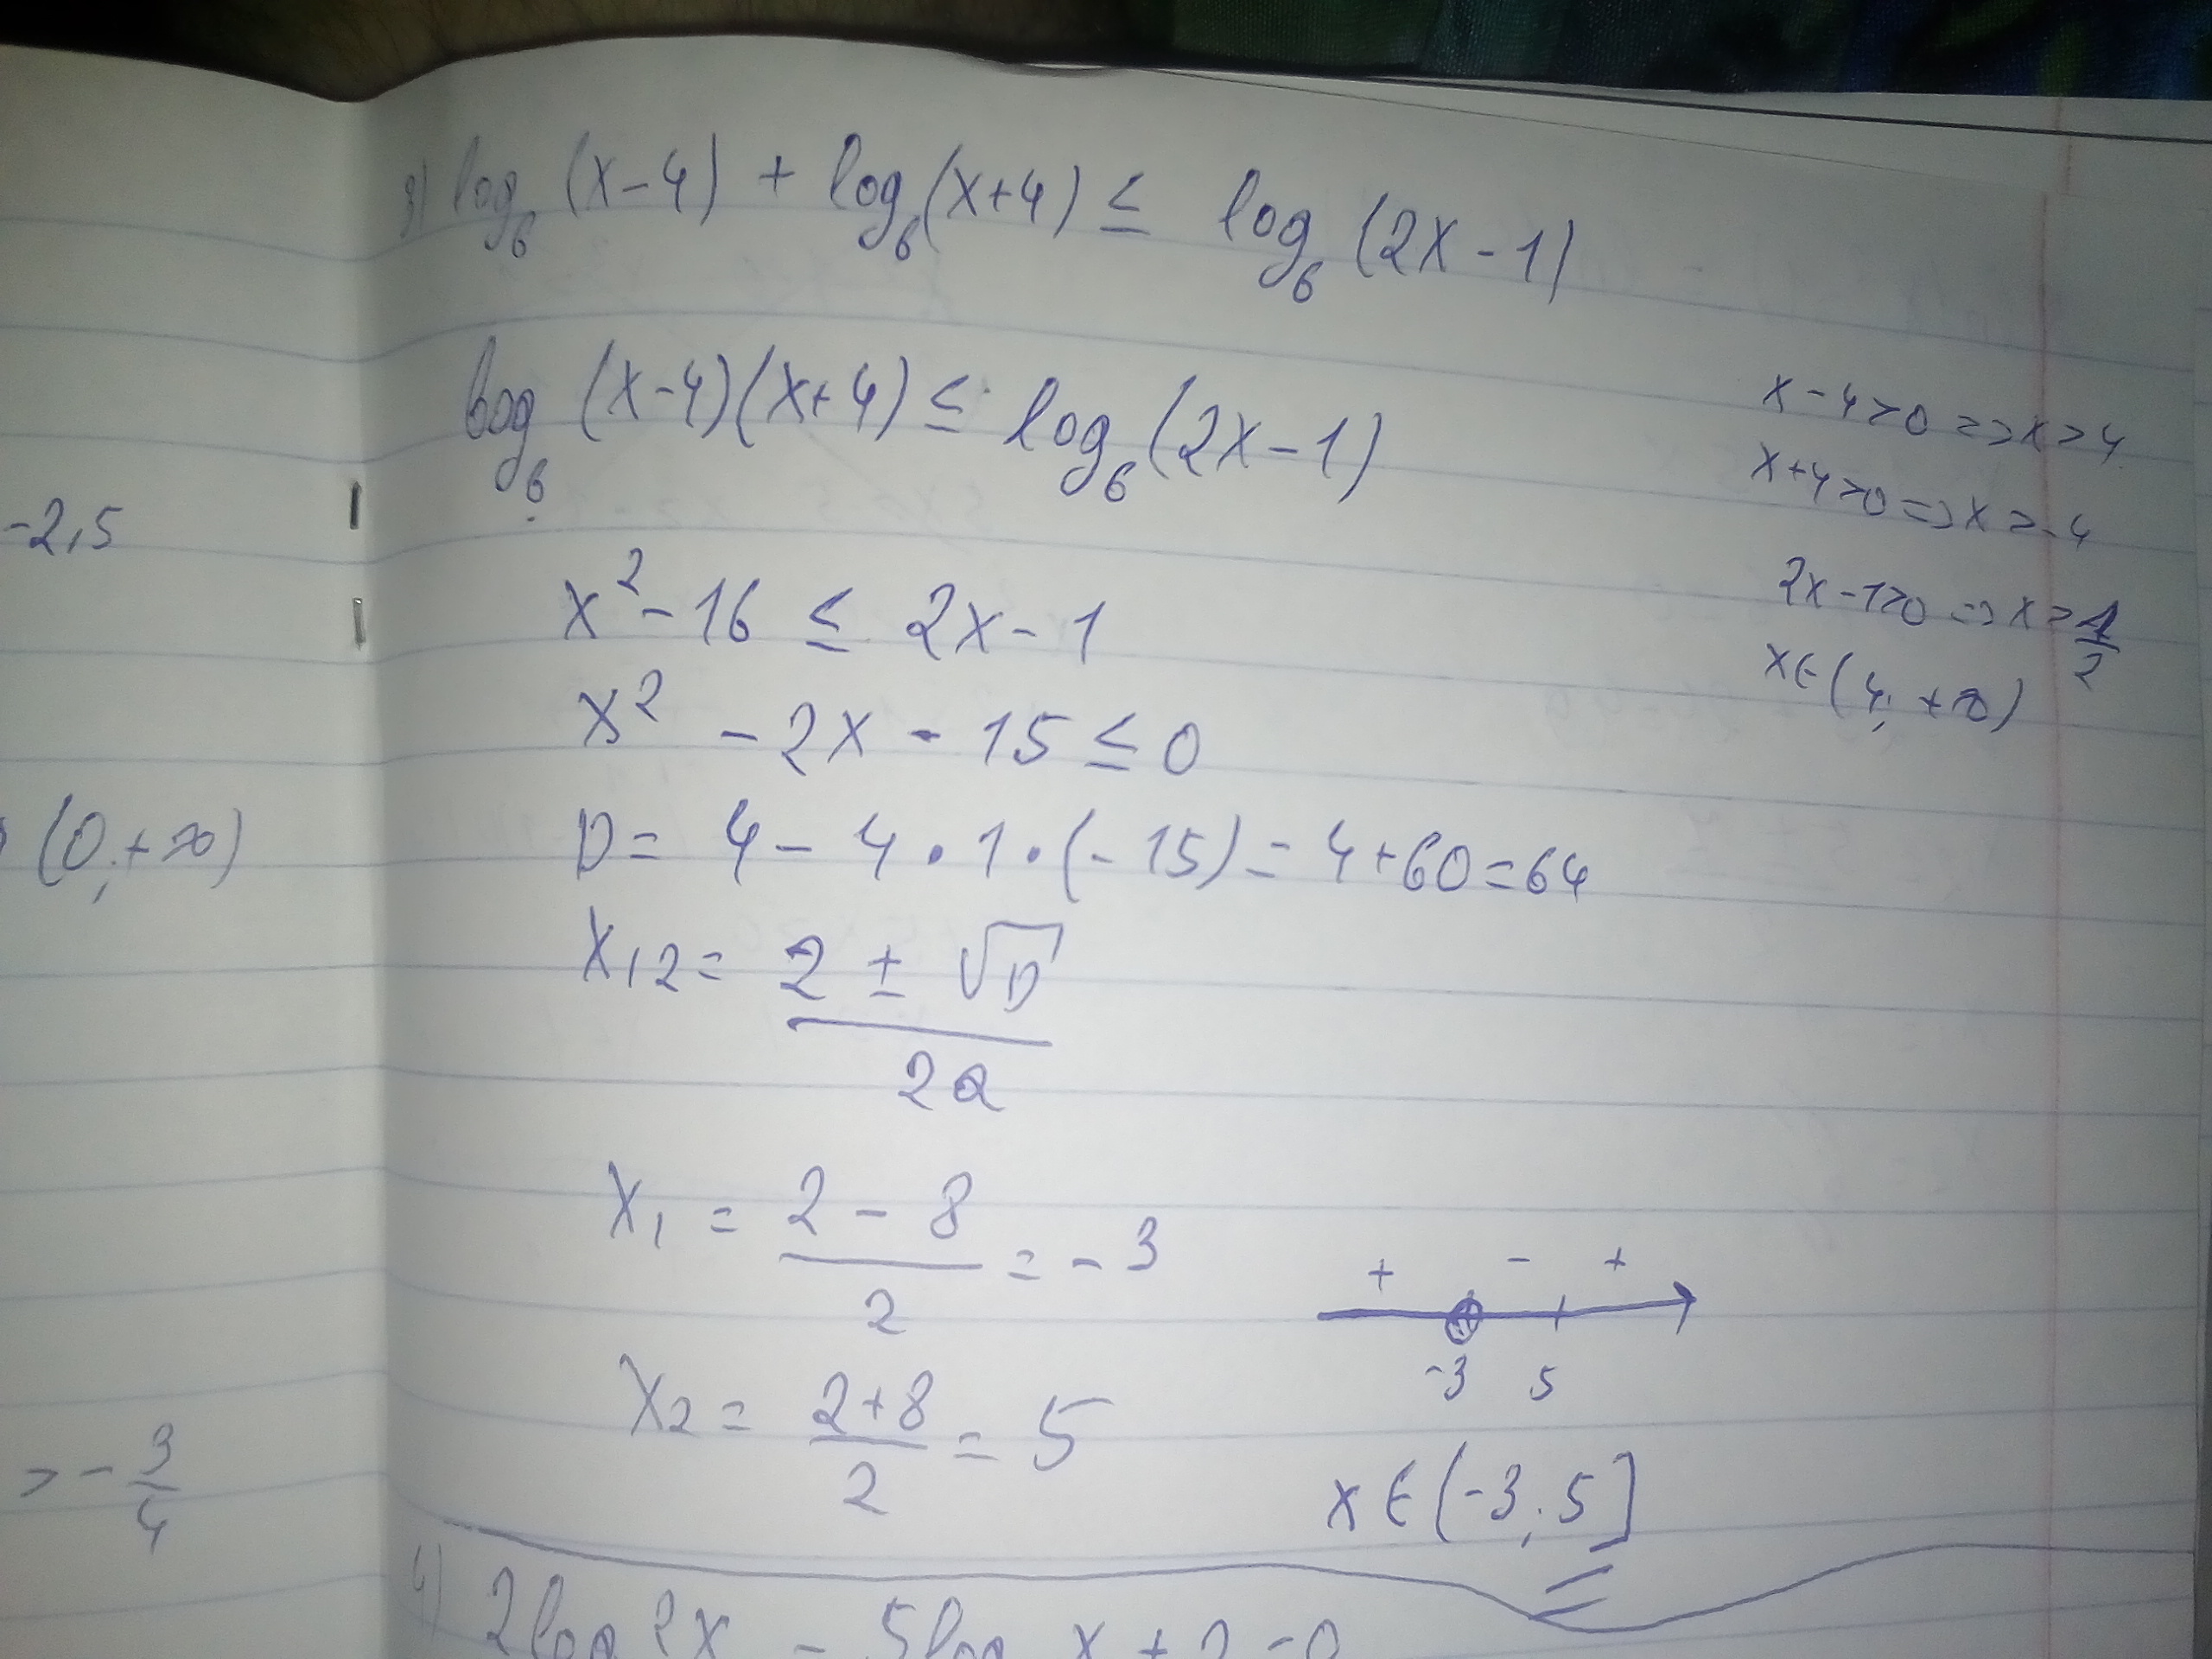 3) log₆ (x-4) + log₆(x+4) ≤ log₆ (2x-1)
log₆ (x-4)(x+4) ≤ log₆(2x-1)
x-4>0 => x>4
x+4>0 => x>-4
2x-1>0 => x>1/2
x∈(4; +∞)
-2,5
x²-16 ≤ 2x-1
x² - 2x - 15 ≤ 0
(0;+∞)
D= 4 - 4 · 1 · (-15) = 4+60=64
x₁₂= (2 ± √D)/(2a)
x₁ = (2-8)/2 = -3
+ - +
-3 5
x₂ = (2+8)/2 = 5
x∈(-3; 5]
> - 3/4
4) 2log x - 5log x + 2 = 0